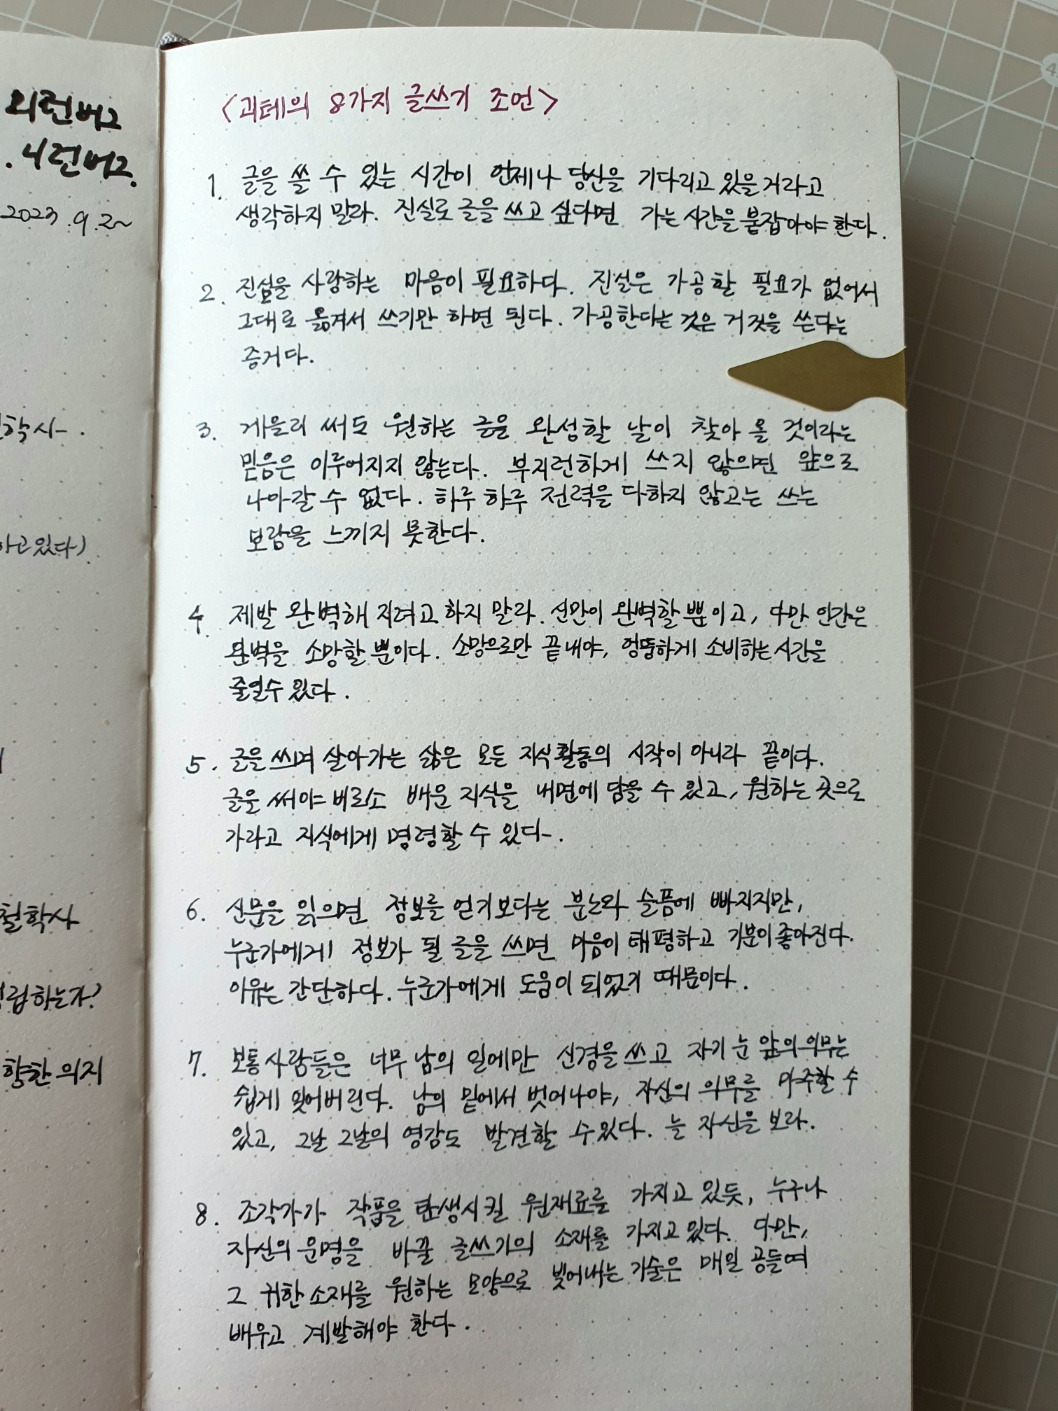 외런버그
.니런버그.
2023.9.2~
학사.
하고있다)
철학사
립하는가?
향한 의지
<괴테의 8가지 글쓰기 조언>
1. 글을 쓸 수 있는 시간이 언제나 당신을 기다리고 있을거라고
생각하지 말라. 진실로 글을 쓰고 싶다면 가는 시간을 붙잡아야 한다.
2. 진실을 사랑하는 마음이 필요하다. 진실은 가공할 필요가 없어서
그대로 옮겨서 쓰기만 하면 된다. 가공한다는 것은 거짓을 쓴다는
증거다.
3. 게을리 써도 원하는 글을 완성할 날이 찾아 올 것이라는
믿음은 이루어지지 않는다. 부지런하게 쓰지 않으면 앞으로
나아갈 수 없다. 하루 하루 전력을 다하지 않고는 쓰는
보람을 느끼지 못한다.
4. 제발 완벽해 지려고 하지 말라. 신만이 완벽할 뿐이고, 다만 인간은
완벽을 소망할 뿐이다. 소망으로만 끝내야, 엉뚱하게 소비하는 시간을
줄일수 있다.
5. 글을 쓰며 살아가는 삶은 모든 지식활동의 시작이 아니라 끝이다.
글을 써야 비로소 배운 지식을 내면에 담을 수 있고, 원하는 곳으로
가라고 지식에게 명령할 수 있다.
6. 신문을 읽으면 정보를 얻기보다는 분노와 슬픔에 빠지지만,
누군가에게 정보가 될 글을 쓰면 마음이 태평하고 기분이 좋아진다.
이유는 간단하다. 누군가에게 도움이 되었기 때문이다.
7. 보통 사람들은 너무 남의 일에만 신경을 쓰고 자기 눈 앞의 의무는
쉽게 잊어버린다. 남의 밑에서 벗어나야, 자신의 의무를 마주할 수
있고, 그날 그날의 영감도 발견할 수 있다. 늘 자신을 보라.
8. 조각가가 작품을 탄생시킬 원재료를 가지고 있듯, 누구나
자신의 운명을 바꿀 글쓰기의 소재를 가지고 있다. 다만,
그 귀한 소재를 원하는 모양으로 빚어내는 기술은 매일 공들여
배우고 계발해야 한다.